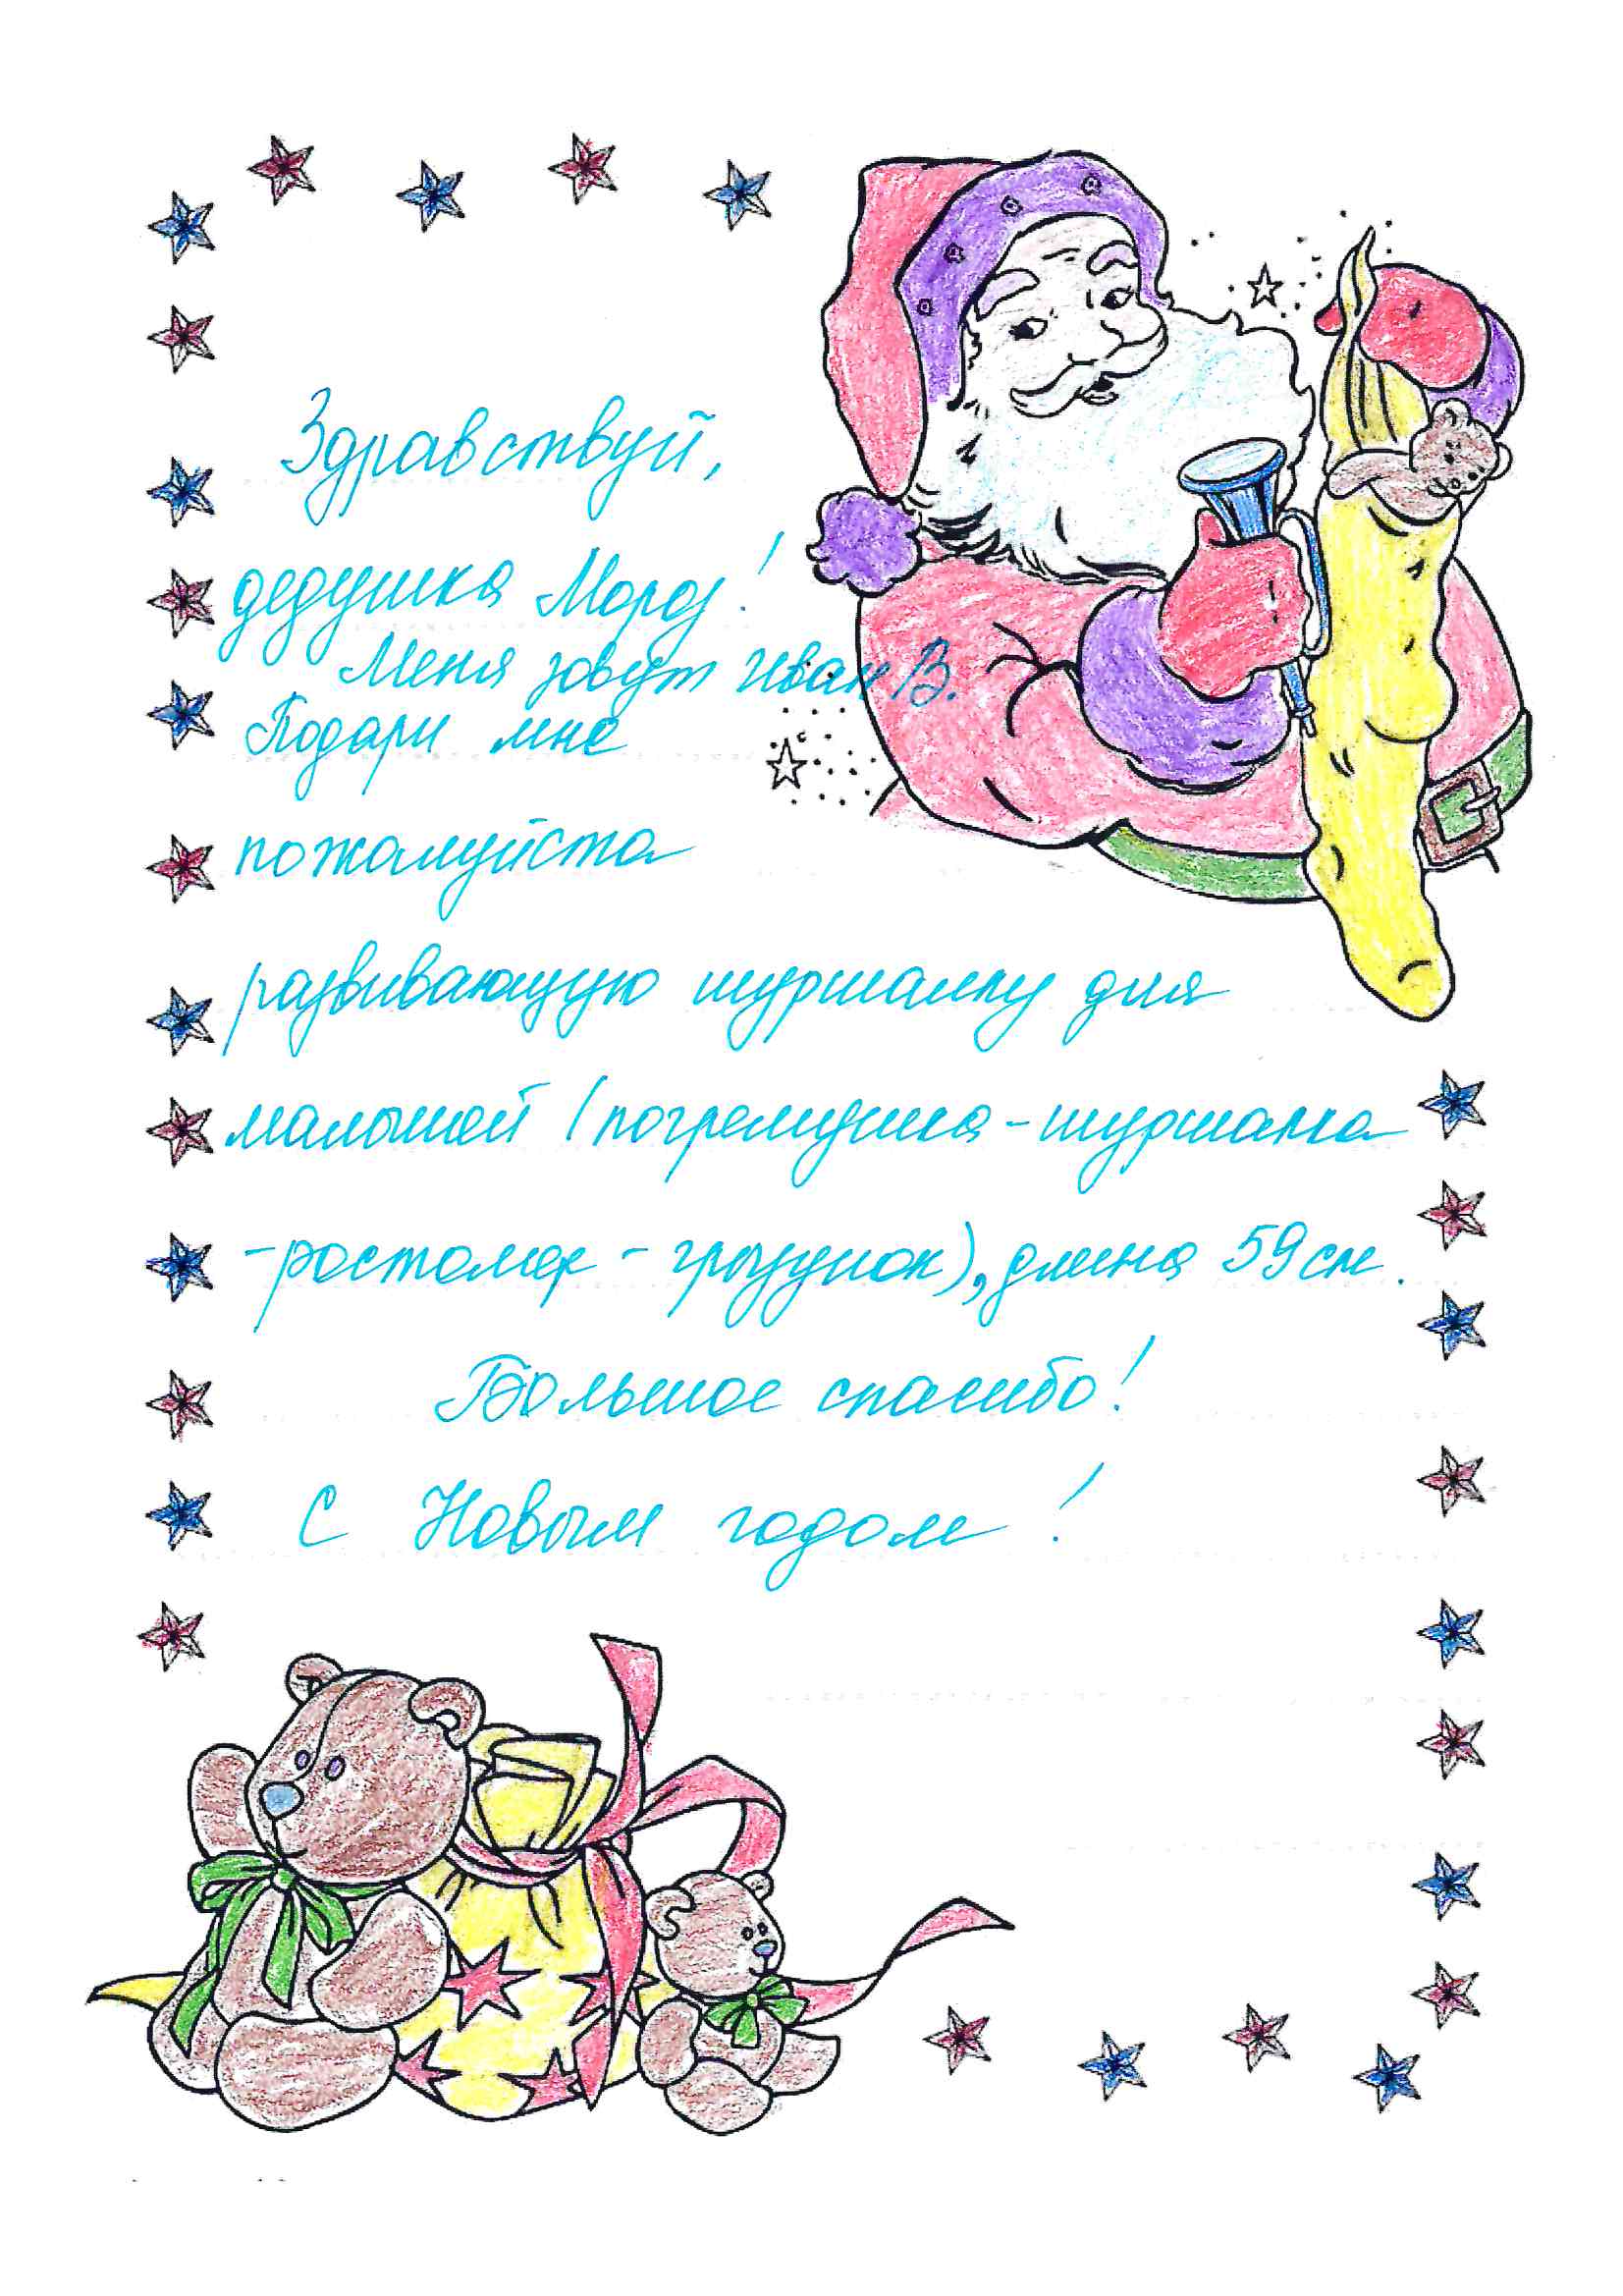 Здравствуй,
дедушка Мороз!
Меня зовут Иван В.
Подари мне
пожалуйста
развивающую шуршалку для
малышей (погремушка-шуршалка
-ростомер-грызунок), длина 59 см.
Большое спасибо!
С Новым годом!